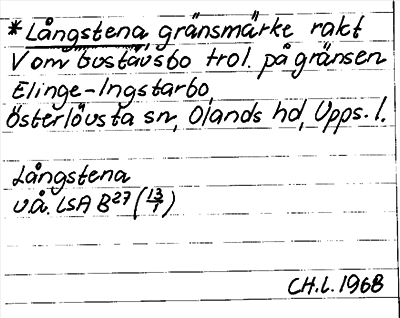 *Långstena, gränsmärke rakt
V om Gustavsbo trol. på gränsen
Elinge-Ingstarbo,
Österlövsta sn, Olands hd, Upps. l.
Långstena
U.Å. LSA B27 (13/1)
CH.L. 1968